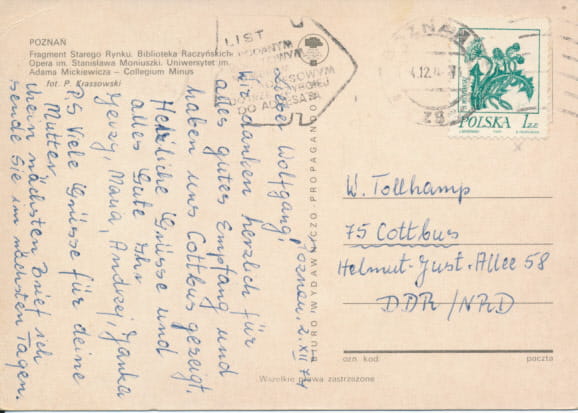 POZNAŃ
Fragment Starego Rynku. Biblioteka Raczyńskich
Opera im. Stanisława Moniuszki. Uniwersytet im.
Adama Mickiewicza – Collegium Minus
fot. P. Krassowski
LIST
KODOWYM
DO ADRESATA
POZNAŃ
4.12.
POLSKA 1 ZŁ
Poznań, 2. XII 74
Lieber Wolfgang!
Wir danken herzlich für
alles gutes Empfang und
haben uns Cottbus gezeigt.
Herzliche Grüsse und
alles Gute Ihr
Jerzy, Maria, Andrzej, Janka
P.S Viele Grüsse für deine
Mutter.
Mein nächsten Brief ich
sende Sie im nächsten Tagen.
BIURO WYDAWNICZO-PROPAGANDOWE
W. Tollhamp
75 Cottbus
Helmut-Just-Allee 58
DDR/NRD
ozn. kod poczta
Wszelkie prawa zastrzeżone